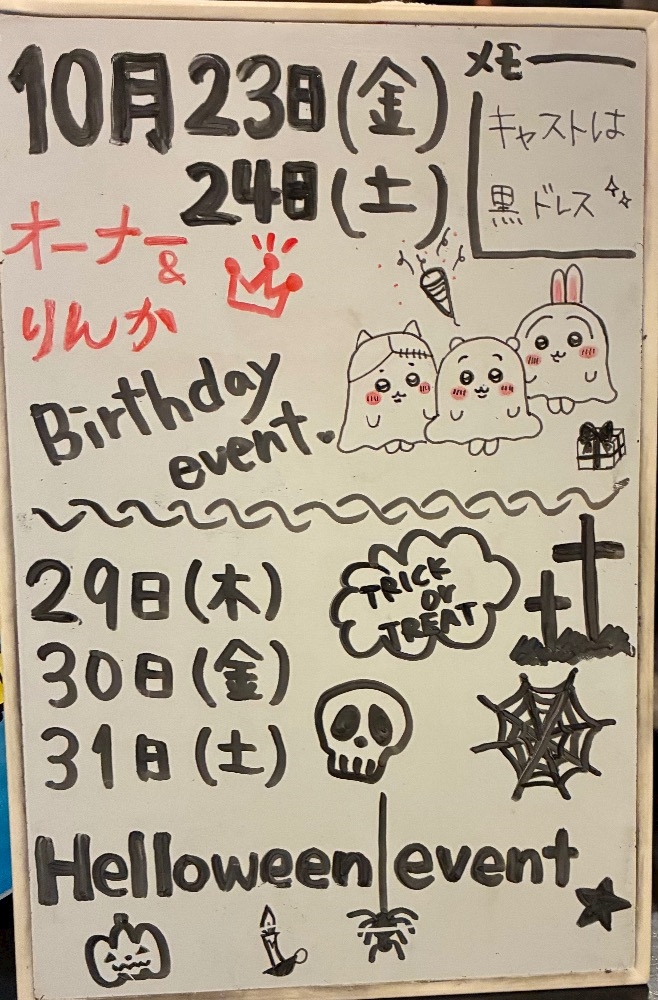 10月23日(金)
24日(土)
メモ
キャストは
黒ドレス
オーナー
&
りんか
Birthday
event.
29日(木)
30日(金)
31日(土)
TRICK
or
TREAT
Helloween event